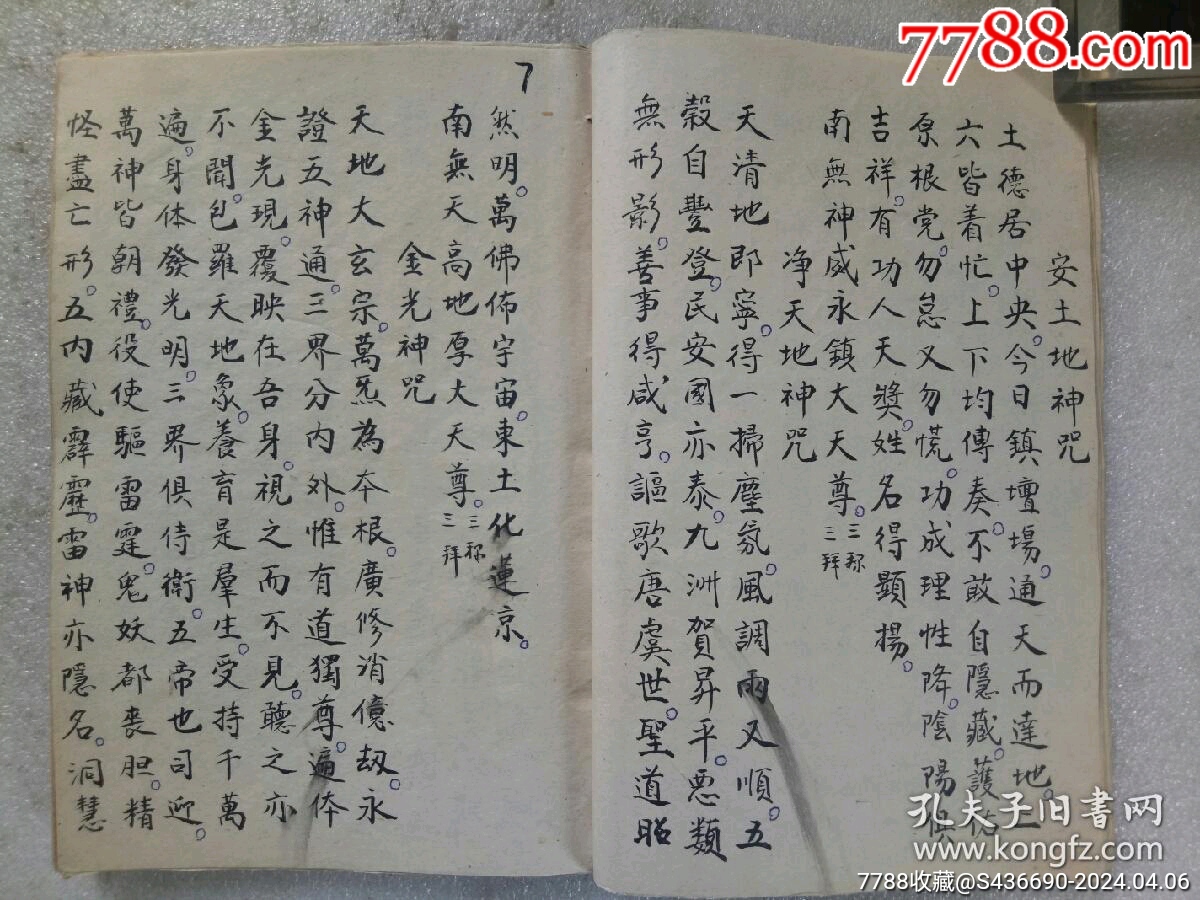 安土地神咒
土德居中央。今日鎮壇場。通天而達地。三
六皆着忙。上下均傳奏。不敢自隱藏。護佑
原根党。勿怠又勿慌。功成理性降。陰陽俱
吉祥。有功人天奬。姓名得顯揚。
南無神威永鎮大天尊。三称三拜
净天地神咒
天清地即寧。得一掃塵氛。風調雨又順。五
榖自豐登。民安國亦泰。九洲賀昇平。悪類
無形影。善事得咸亨。謳歌唐虞世。聖道昭
7
然明。萬佛佈宇宙。東土化蓮京。
南無天高地厚大天尊。三称三拜
金光神咒
天地大玄宗。萬炁為夲根。廣修消億刼。永
證五神通。三界分内外。惟有道獨尊。遍体
金光現。覆映在吾身。視之而不見。聽之亦
不聞。包羅天地象。養育是羣生。受持千萬
遍。身体發光明。三界俱侍衛。五帝也司迎。
萬神皆朝禮。役使驅雷霆。鬼妖都喪胆。精
怪盡亡形。五内藏霹靂。雷神亦隱名。洞慧
7788.com
孔夫子旧书网
www.kongfz.com
7788收藏@S436690-2024.04.06